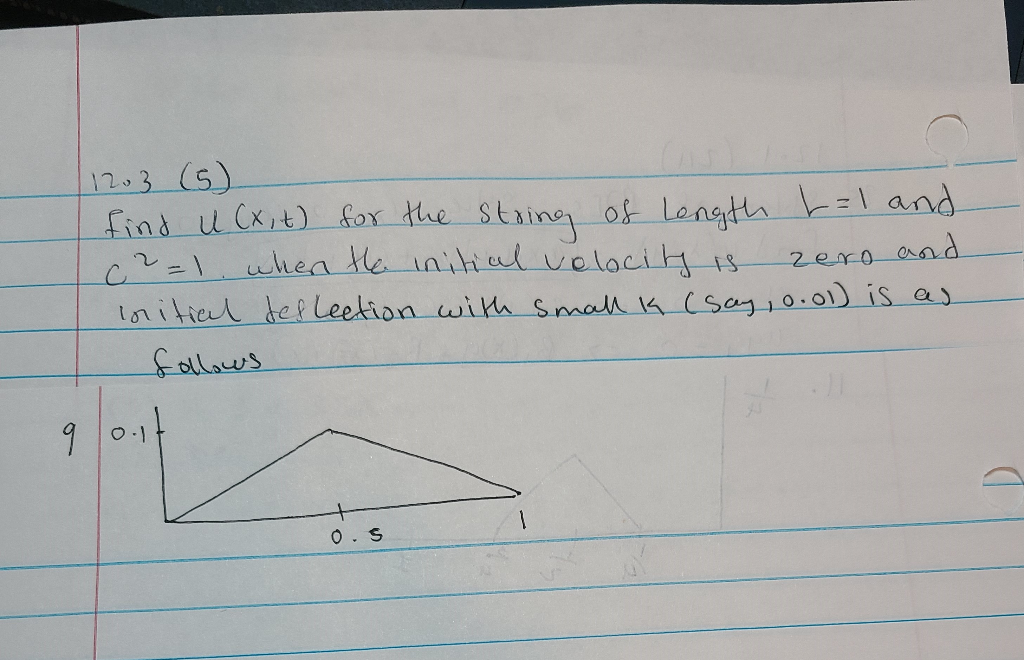 12.3 (5)
find u(x,t) for the string of Length L=1 and
c²=1. when the initial velocity is zero and
initial deflection with small k (say, 0.01) is as
follows
9 0.1
0.5 1